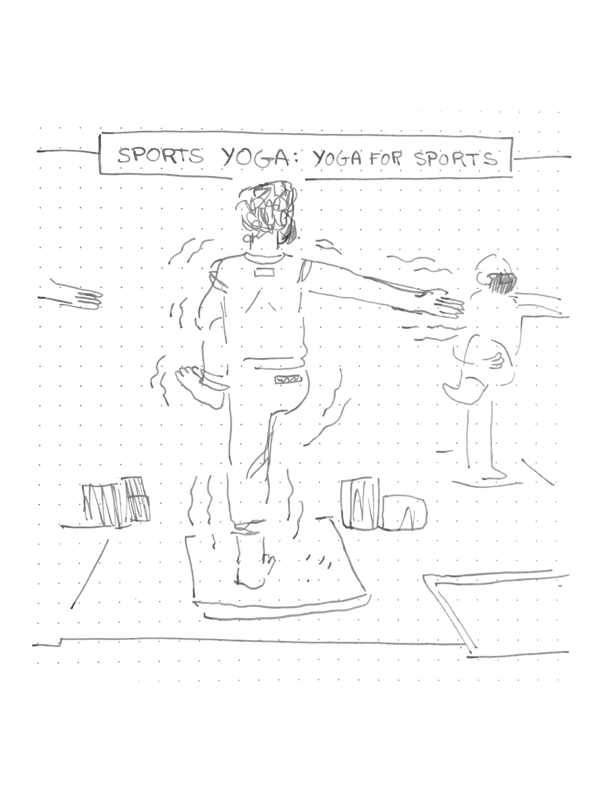 SPORTS YOGA: YOGA FOR SPORTS